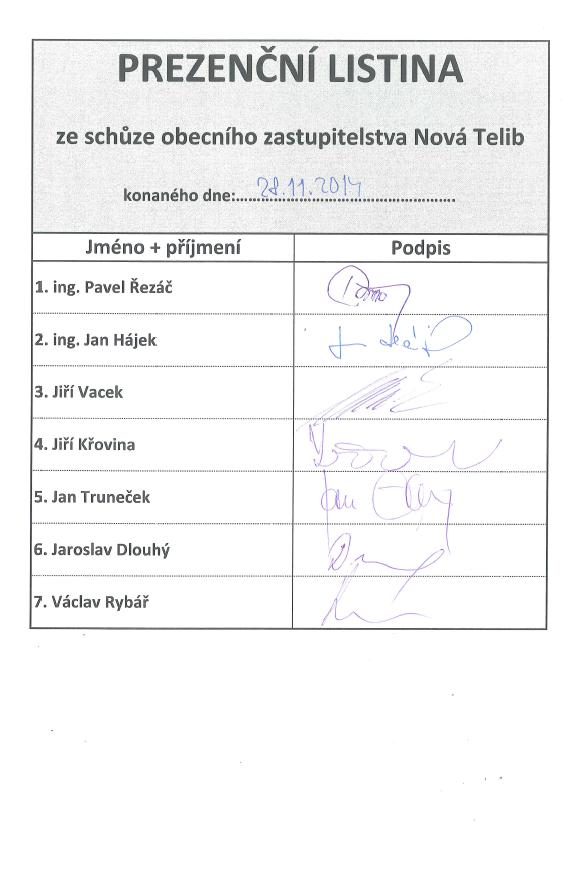 PREZENČNÍ LISTINA
ze schůze obecního zastupitelstva Nová Telib
konaného dne:..... 28.11.2014 .....
Jméno + příjmení Podpis
1. ing. Pavel Řezáč
2. ing. Jan Hájek
3. Jiří Vacek
4. Jiří Křovina
5. Jan Truneček
6. Jaroslav Dlouhý
7. Václav Rybář